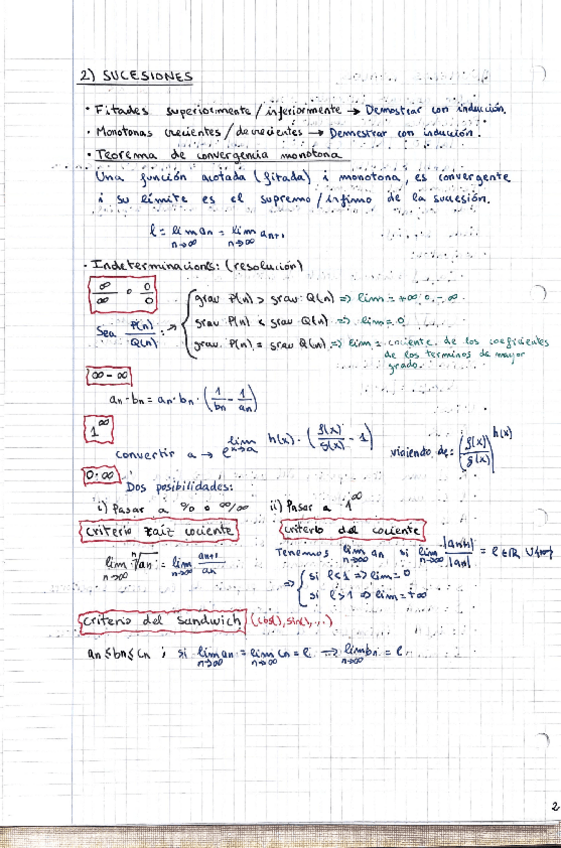 2) SUCESIONES
· Fitades superiormente / inferiormente → Demostrar con inducción.
· Monotonas crecientes / decrecientes → Demostrar con inducción.
· Teorema de convergencia monotona
Una función acotada (fitada) i monotona, es convergente
i su límite es el supremo / ínfimo de la sucesión.
l = lim an = lim an+1
n→∞ n→∞
· Indeterminacions: (resolución)
∞/∞ o 0/0
Sea P(n)/Q(n) :→
grau P(n) > grau Q(n) ⇒ lim = +∞ o, -∞
grau P(n) < grau Q(n) ⇒ lim = 0
grau P(n) = grau Q(n) ⇒ lim = cociente de los coeficientes
de los terminos de mayor
grado.
∞ - ∞
an - bn = an · bn · (1/bn - 1/an)
1^∞
convertir a → e^lim x→a h(x) · (f(x)/g(x) - 1) viniendo de: (f(x)/g(x))^h(x)
0·∞
Dos posibilidades:
i) Pasar a 0/0 o ∞/∞ ii) Pasar a 1^∞
Criterio raiz cociente criterio del cociente
lim n→∞ ⁿ√an = lim n→∞ an+1/an
Tenemos lim n→∞ an si lim n→∞ |an+1|/|an| = l ∈ ℝ ∪ {+∞}
⇒ si l<1 ⇒ lim = 0
si l>1 ⇒ lim = +∞
Criterio del Sandwich (cos(), sin(), ...)
an ≤ bn ≤ cn ; si lim an = lim cn = l ⇒ lim bn = l
n→∞ n→∞ n→∞
2